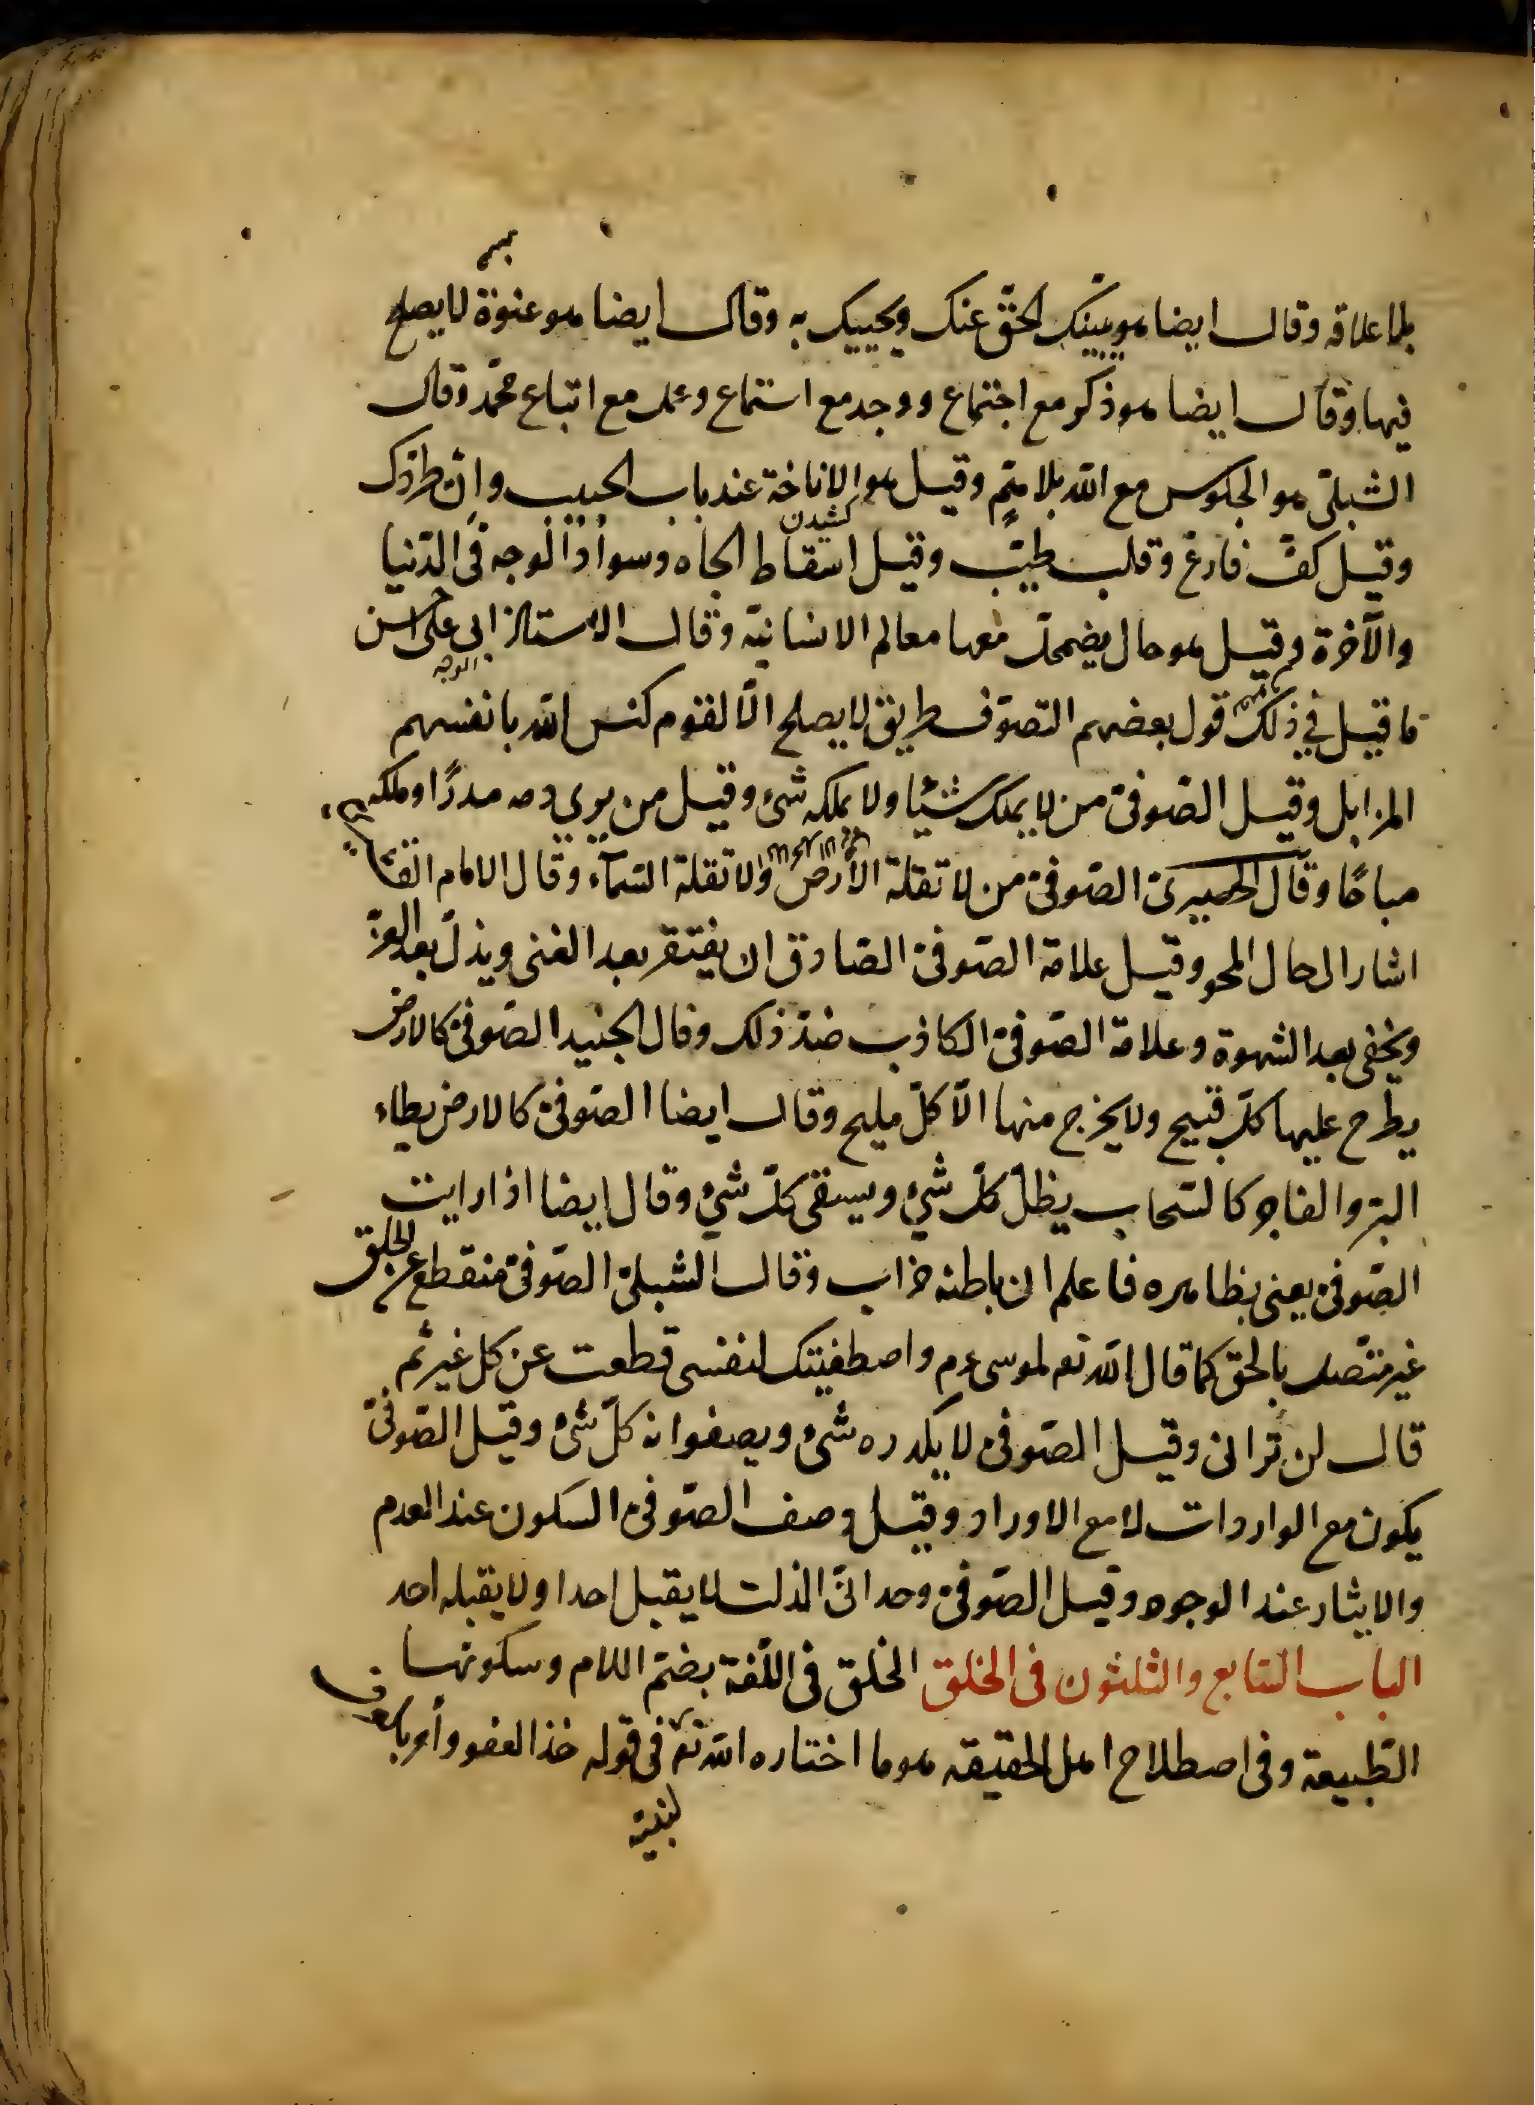 بلا علاقه وقال ايضا هو يميتك الحق عنك ويحييك به وقال ايضا هو عنوة لا يصلح
فيها وقال ايضا هو ذكر مع اجتماع ووجد مع استماع وعمل مع اتباع محمد وقال
الشبلى هو الجلوس مع الله بلا همّ وقيل هو الاناخة عند باب الحبيب وان طردك
كشيدن
وقيل كفّ فارغ وقلب طيّب وقيل اسقاط الجاه وسواد الوجه فى الدّنيا
والآخرة وقيل هو حال يضمحل معها معالم الانسانيّة وقال الاستاذ ابى على احسن
الوجه
ما قيل في ذلك قول بعضهم التصوّف طريق لا يصلح الّا لقوم كنس الله بانفسهم
المزابل وقيل الصّوفىّ من لا يملك شيئا ولا يملكه شئ وقيل من يرى دمه هدرًا وملكه
مباحًا وقال الحصيرىّ الصّوفىّ من لا تقلة الارض ولا تقلة السّماء وقال الامام
اشار الى حال المحو وقيل علامة الصّوفىّ الصّادق ان يفتقر بعد الغنى ويذلّ بعد العزّ
ويخفى بعد الشهوة وعلامة الصّوفىّ الكاذب ضدّ ذلك وقال الجنيد الصّوفىّ كالارض
يطرح عليها كلّ قبيح ولا يخرج منها الّا كلّ مليح وقال ايضا الصّوفىّ كالارض يطاء
البرّ والفاجر كالسّحاب يظلّ كلّ شئ ويسقى كلّ شئ وقال ايضا اذا رايت
الصّوفىّ يعنى بظاهره فاعلم ان باطنه خراب وقال الشبلىّ الصّوفىّ منقطع عن الخلق
غير متّصل بالحق كما قال الله تعـ لموسى عم واصطفيتك لنفسى قطعت عن كل غير ثم
قال لن ترانى وقيل الصّوفىّ لا يكدره شئ ويصفوا به كلّ شئ وقيل الصّوفىّ
يكون مع الواردات لا مع الاوراد وقيل وصف الصّوفىّ السكون عند العدم
والايثار عند الوجود وقيل الصّوفىّ وحدانىّ الذات لا يقبل احدا ولا يقبله احد
الباب السّابع والثلثون فى الخلق الخلق فى اللّغة بضمّ اللام وسكونها
الطّبيعة وفى اصطلاح اهل الحقيقه هو ما اختاره الله تعـ فى قوله خذ العفو وأمر بالعرف
لبنيّه